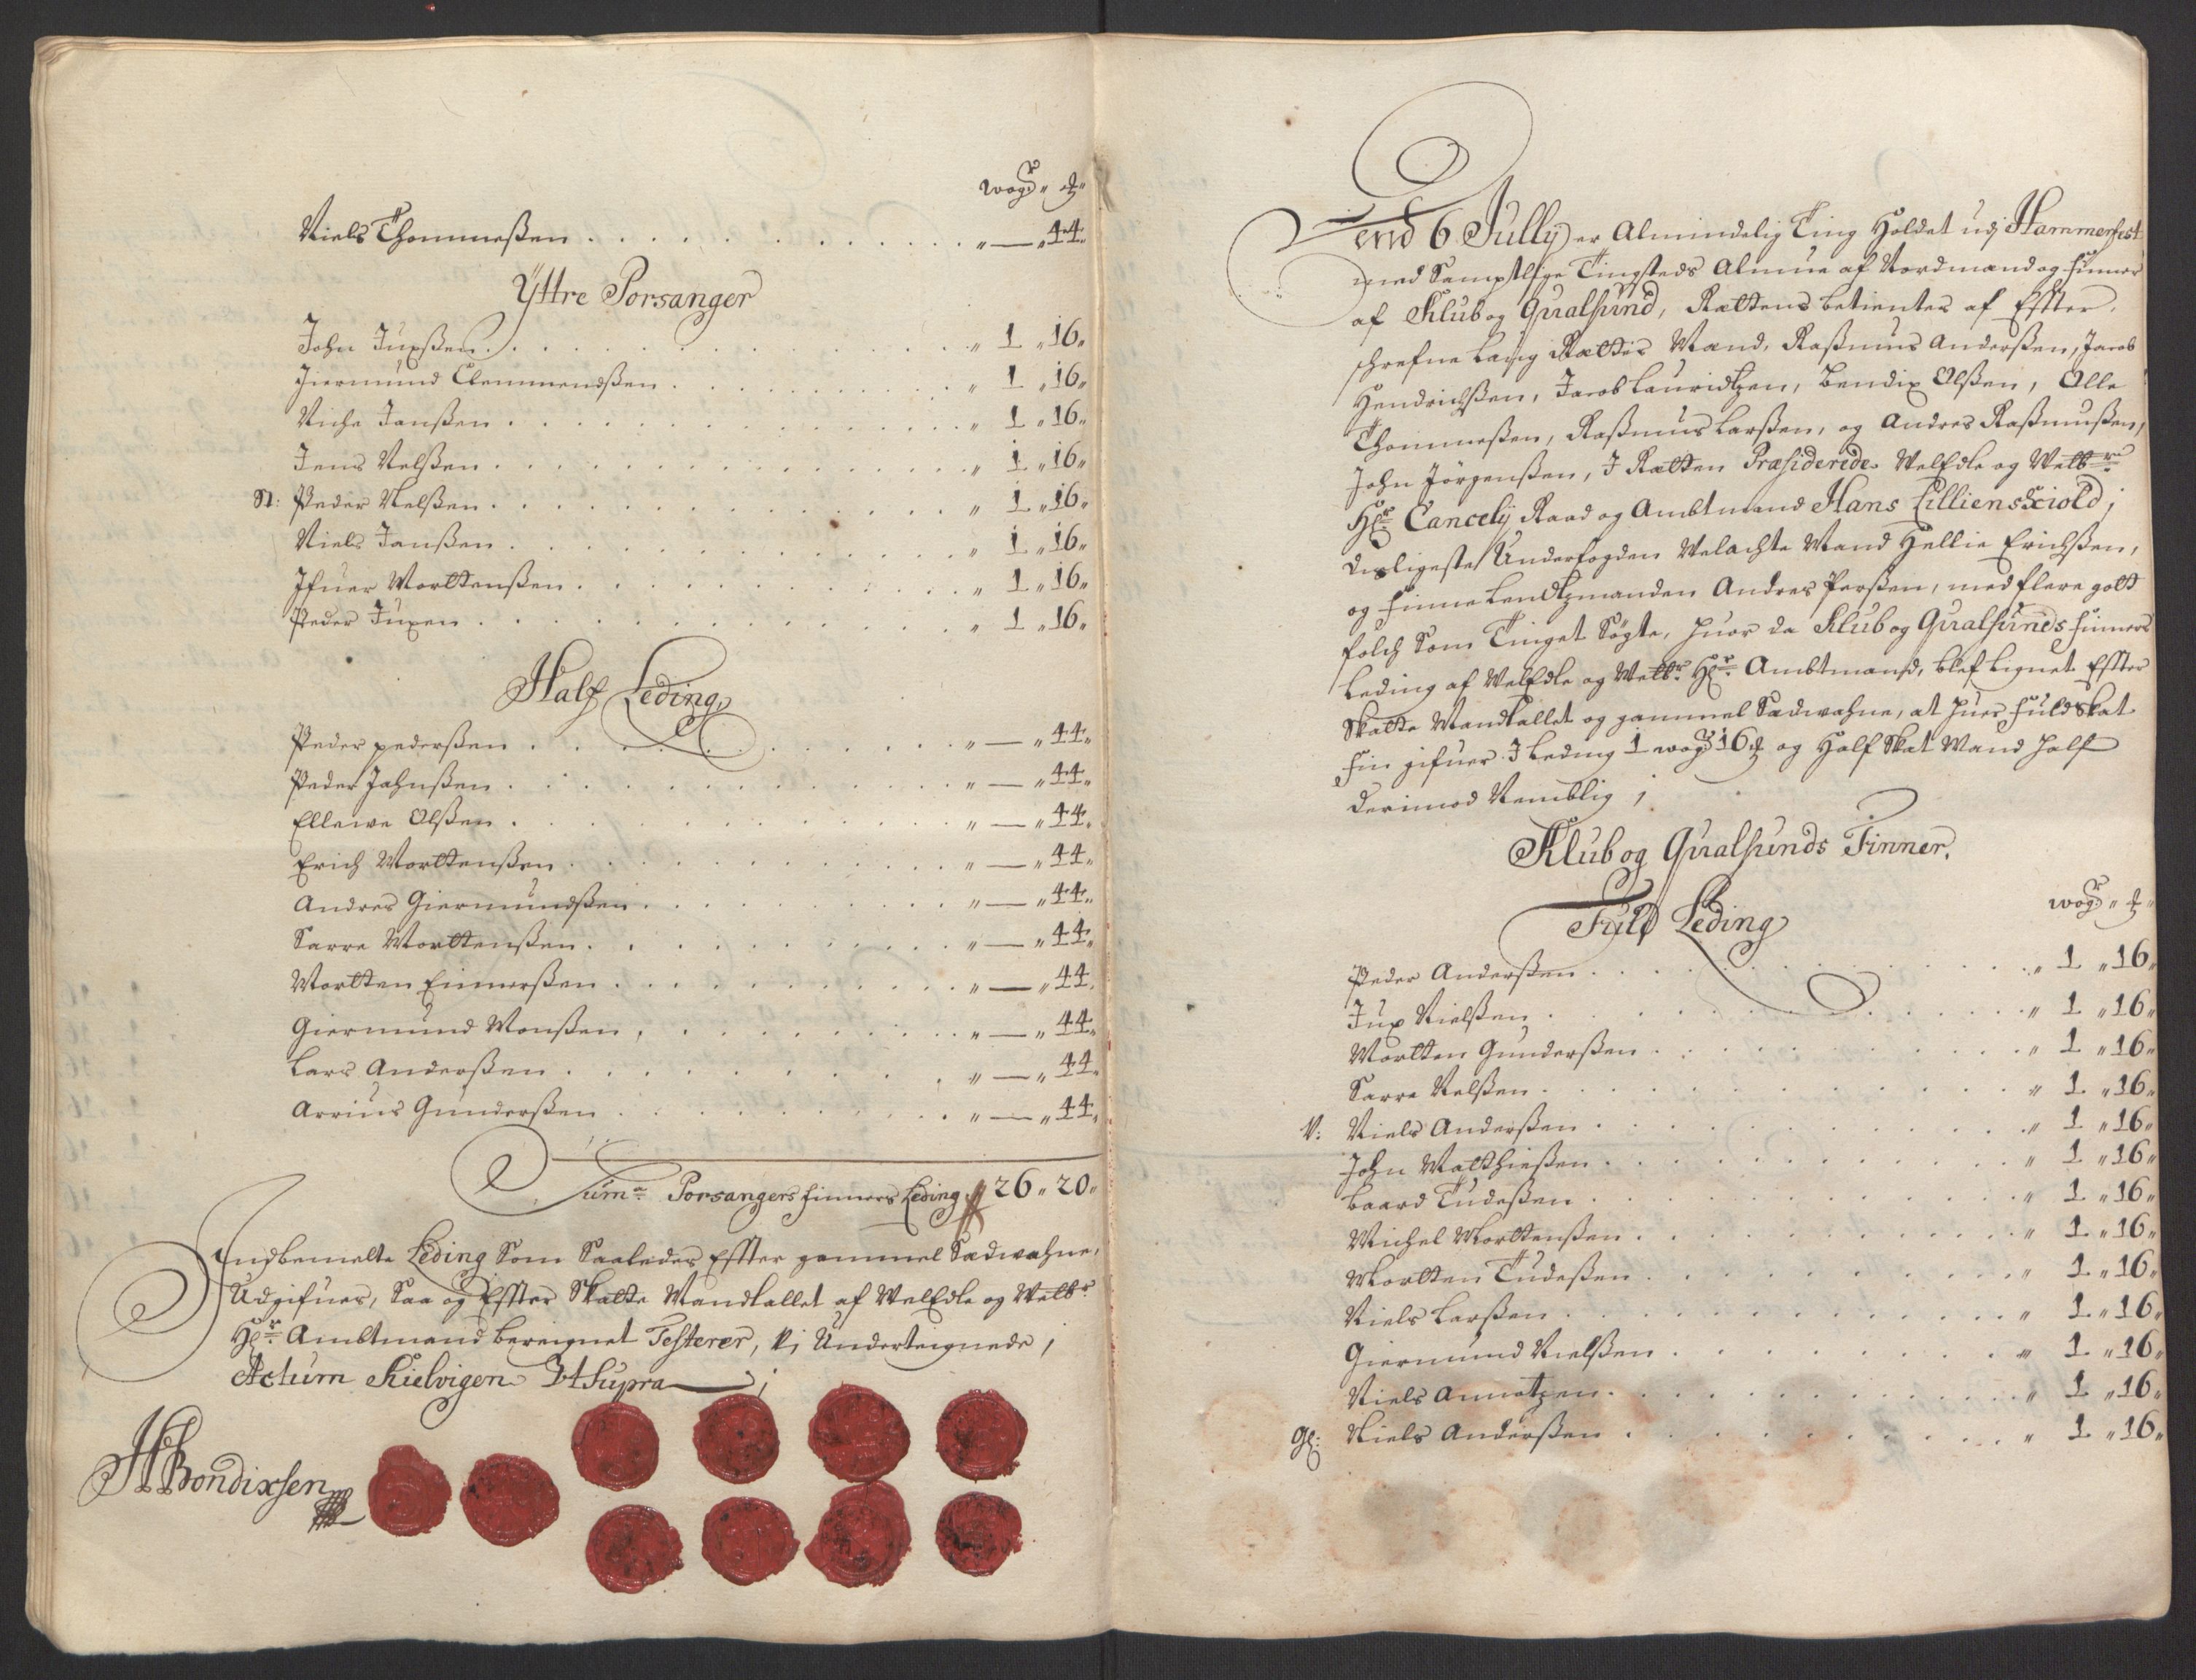 wogr „ ℔ „
Niels Thommeßen . . . . „ — „ 44 „
Yttre Porsanger
John Juxßen . . . . „ 1 „ 16 „
Jiermund Clemmendßen . . . . „ 1 „ 16 „
Niche Janßen . . . . „ 1 „ 16 „
Jens Nelßen . . . . „ 1 „ 16 „
St: Peder Nelßen . . . . „ 1 „ 16 „
Niels Janßen . . . . „ 1 „ 16 „
Ifuer Morttenßen . . . . „ 1 „ 16 „
Peder Juxen . . . . „ 1 „ 16 „
Half Leding
Peder pederßen . . . . „ — „ 44 „
Peder Jahnßen . . . . „ — „ 44 „
Ellewe Olßen . . . . „ — „ 44 „
Erich Morttenßen . . . . „ — „ 44 „
Andres Giermundßen . . . . „ — „ 44 „
Sarre Morttenßen . . . . „ — „ 44 „
Mortten Einnerßen . . . . „ — „ 44 „
Giermund Monßen . . . . „ — „ 44 „
Lars Anderßen . . . . „ — „ 44 „
Arrius Gunderßen . . . . „ — „ 44 „
Suma Porsangers finners Leding 26 „ 20 „
Indbemelte Leding Som Saaledes Effter gammel Sædwahne,
Udgifues, Saa og Effter Skatte Mandtallet af WelEdle og Welbr
Hr Ambtmand bereignet Testerer, Vi Underteignede /
Actum Kielvigen Ut Supra
HBendixsen
Dend 6 Jully er Almindelig Ting Holdet udj Hammerfest
med Samptlige Tingsteds Almue af Nordmand og finner
af Klub og Qualsund, Rættens betientes af Effter
schrefne Laug Rættis Mænd, Raßmus Anderßen, Jacob
Hendrichßen, Jacob Lauridtzen, Bendix Olßen, Olle
Thommeßen, Raßmus Larßen, og Andres Raßmußen,
John Jörgenßen, I Rætten Præsiderede WelEdle og Welbr
Hr Cancelij Raad og Ambtmand Hans Lilliensckiold,
disligeste Underfogden Velachte Mand Hellie Erichßen,
og finne Lendtzmanden Andres Perßen, med flere gott
folch Som Tinget Søgte, huor da Klub og Qualsunds finners
Leding af WelEdle og Welbr Hr Ambtmand, blef Lignet Effter
Skatte Mandtallet og gammel Sædwahne, at huer fuldskat
Fin gifuer I Leding 1 wogr 16 ℔ og Half Skat Mand half
derimod Nemblig /
Klub og Qualsunds Finner.
Fuld Leding
wogr „ ℔ „
Peder Anderßen . . . . „ 1 „ 16 „
Jux Nielßen . . . . „ 1 „ 16 „
Mortten Gunderßen . . . . „ 1 „ 16 „
Sarre Nelßen . . . . „ 1 „ 16 „
V: Niels Anderßen . . . . „ 1 „ 16 „
John Matthießen . . . . „ 1 „ 16 „
Baard Tudeßen . . . . „ 1 „ 16 „
Michel Morttenßen . . . . „ 1 „ 16 „
Mortten Tudeßen . . . . „ 1 „ 16 „
Niels Larßen . . . . „ 1 „ 16 „
Giermund Nielßen . . . . „ 1 „ 16 „
Niels Amnotzen . . . . „ 1 „ 16 „
Gl: Niels Anderßen . . . . „ 1 „ 16 „